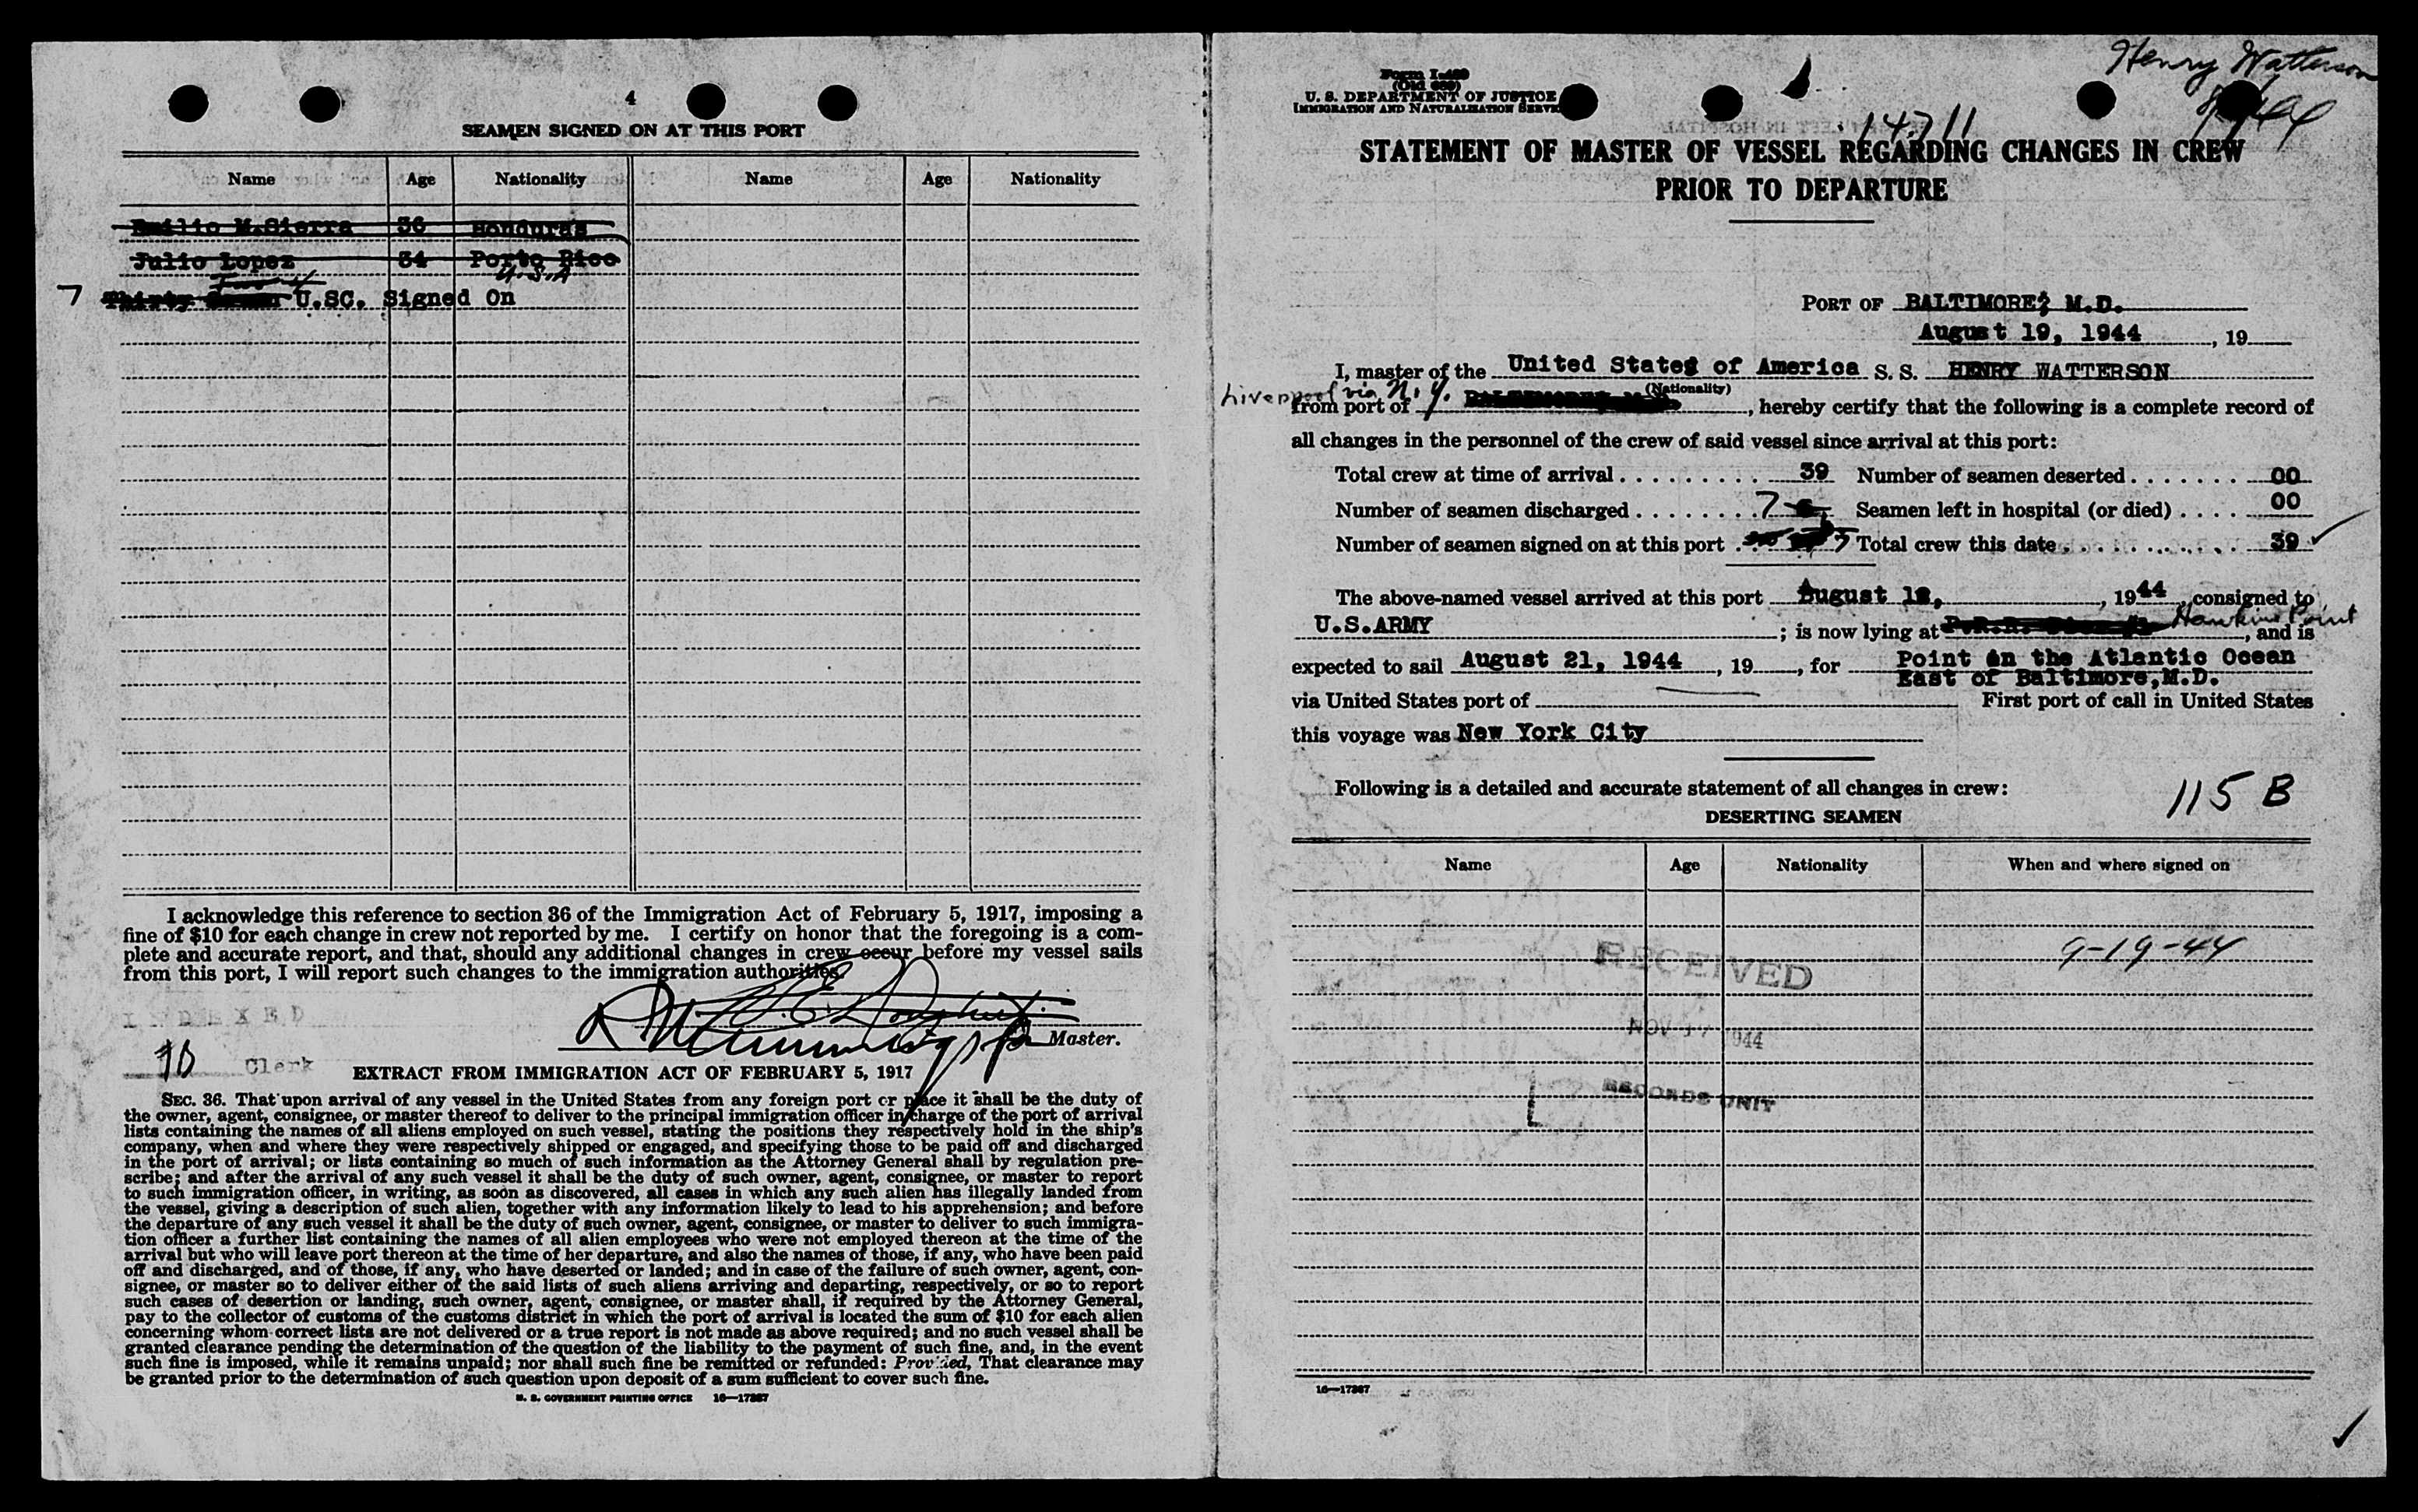 4
SEAMEN SIGNED ON AT THIS PORT
Name Age Nationality Name Age Nationality
Emilio M.Sierra 36 Honduras
Julio Lopez 34 Porto Rico
U.S.A
7 Thirty U.SC. Signed On
I acknowledge this reference to section 36 of the Immigration Act of February 5, 1917, imposing a
fine of $10 for each change in crew not reported by me. I certify on honor that the foregoing is a com-
plete and accurate report, and that, should any additional changes in crew occur before my vessel sails
from this port, I will report such changes to the immigration authorities.
INDEXED
Master.
Clerk
EXTRACT FROM IMMIGRATION ACT OF FEBRUARY 5, 1917
SEC. 36. That upon arrival of any vessel in the United States from any foreign port or place it shall be the duty of
the owner, agent, consignee, or master thereof to deliver to the principal immigration officer in charge of the port of arrival
lists containing the names of all aliens employed on such vessel, stating the positions they respectively hold in the ship's
company, when and where they were respectively shipped or engaged, and specifying those to be paid off and discharged
in the port of arrival; or lists containing so much of such information as the Attorney General shall by regulation pre-
scribe; and after the arrival of any such vessel it shall be the duty of such owner, agent, consignee, or master to report
to such immigration officer, in writing, as soon as discovered, all cases in which any such alien has illegally landed from
the vessel, giving a description of such alien, together with any information likely to lead to his apprehension; and before
the departure of any such vessel it shall be the duty of such owner, agent, consignee, or master to deliver to such immigra-
tion officer a further list containing the names of all alien employees who were not employed thereon at the time of the
arrival but who will leave port thereon at the time of her departure, and also the names of those, if any, who have been paid
off and discharged, and of those, if any, who have deserted or landed; and in case of the failure of such owner, agent, con-
signee, or master so to deliver either of the said lists of such aliens arriving and departing, respectively, or so to report
such cases of desertion or landing, such owner, agent, consignee, or master shall, if required by the Attorney General,
pay to the collector of customs of the customs district in which the port of arrival is located the sum of $10 for each alien
concerning whom correct lists are not delivered or a true report is not made as above required; and no such vessel shall be
granted clearance pending the determination of the question of the liability to the payment of such fine, and, in the event
such fine is imposed, while it remains unpaid; nor shall such fine be remitted or refunded: Provided, That clearance may
be granted prior to the determination of such question upon deposit of a sum sufficient to cover such fine.
U. S. GOVERNMENT PRINTING OFFICE 16—17387
Henry Watterson
Form I-489
(Old 689)
U. S. DEPARTMENT OF JUSTICE
IMMIGRATION AND NATURALIZATION SERVICE
14711
STATEMENT OF MASTER OF VESSEL REGARDING CHANGES IN CREW
PRIOR TO DEPARTURE
PORT OF BALTIMORE, M.D.
August 19, 1944, 19
I, master of the United States of America S. S. HENRY WATTERSON
(Nationality)
Liverpool via N.Y.
from port of BALTIMORE, M.D., hereby certify that the following is a complete record of
all changes in the personnel of the crew of said vessel since arrival at this port:
Total crew at time of arrival 39 Number of seamen deserted 00
Number of seamen discharged 7 Seamen left in hospital (or died) 00
Number of seamen signed on at this port 7 Total crew this date 39 ✓
The above-named vessel arrived at this port August 12, 1944, consigned to
U.S.ARMY; is now lying at Hawkins Point, and is
expected to sail August 21, 1944, 19, for Point in the Atlantic Ocean
East of Baltimore,M.D.
via United States port of First port of call in United States
this voyage was New York City
Following is a detailed and accurate statement of all changes in crew:
115 B
DESERTING SEAMEN
Name Age Nationality When and where signed on
9-19-44
RECEIVED
NOV 17 1944
RECORDS UNIT
16—17387